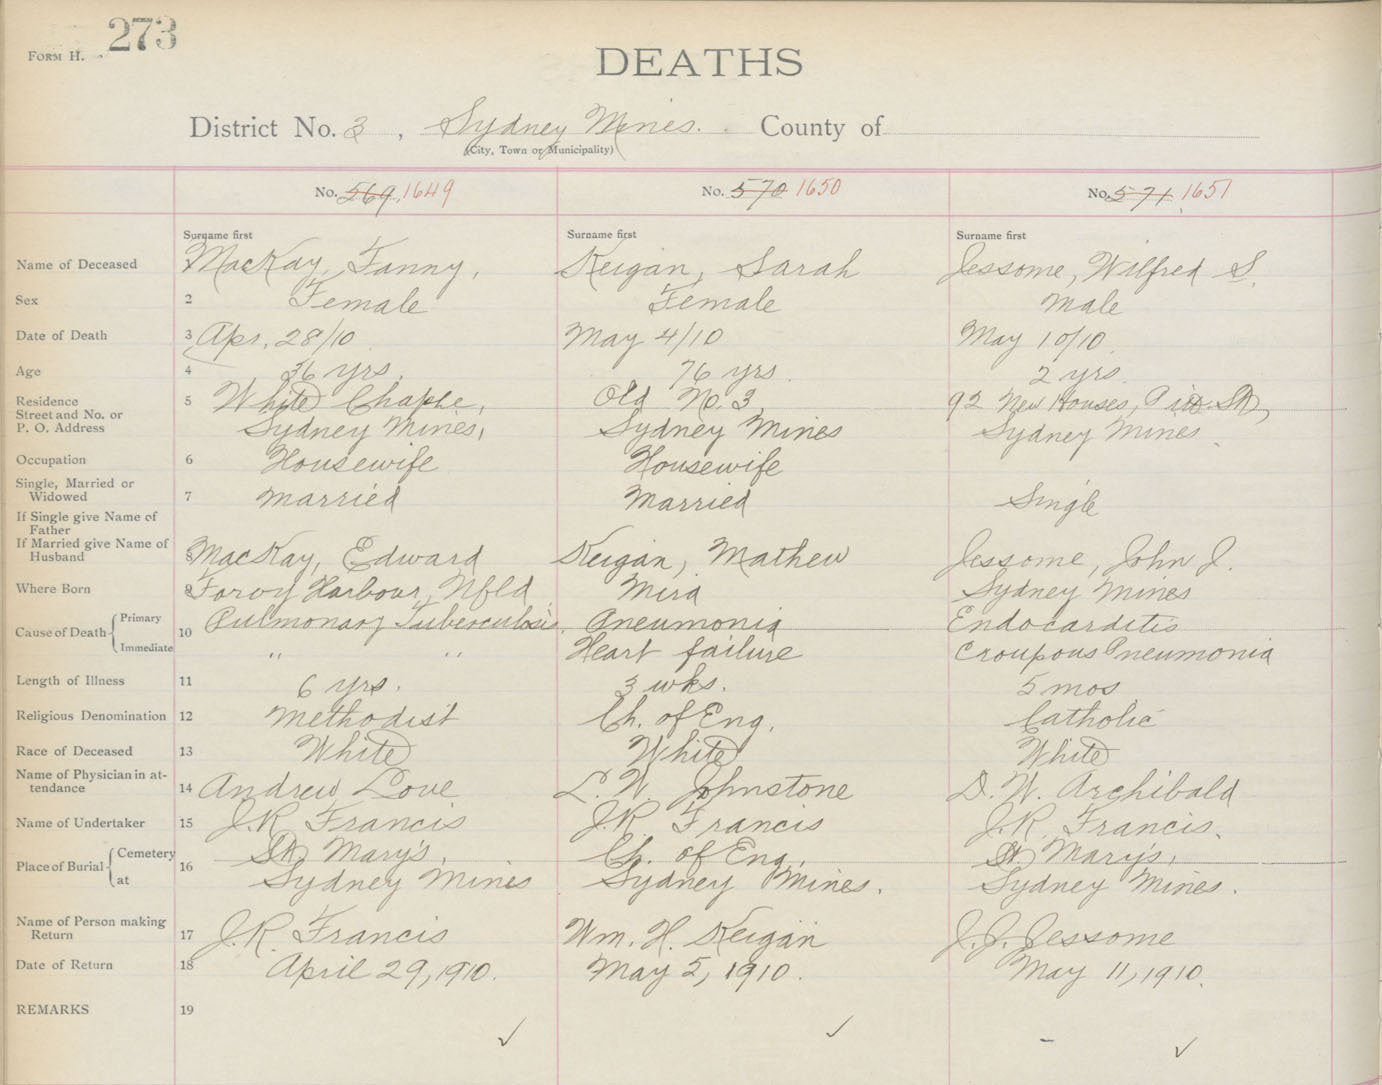 273
FORM H.
DEATHS
District No. 3, Sydney Mines. County of
(City, Town or Municipality)
No. 569 1649 No. 570 1650 No. 571 1651
Surname first Surname first Surname first
Name of Deceased 1 MacKay, Fanny, Keigan, Sarah Jessome, Wilfred S.
Sex 2 Female Female Male
Date of Death 3 Apr. 28/10 May 4/10 May 10/10
Age 4 36 yrs. 76 yrs. 2 yrs.
Residence 5 White Chaple, Old No. 3 92 New Houses,
Street and No. or
P. O. Address Sydney Mines, Sydney Mines Sydney Mines
Occupation 6 Housewife Housewife
Single, Married or
Widowed 7 Married Married Single
If Single give Name of
Father
If Married give Name of
Husband 8 MacKay, Edward Keigan, Mathew Jessome, John J.
Where Born 9 Harbour, Nfld Mira Sydney Mines
Cause of Death Primary 10 Pulmonary Tuberculosis. Pneumonia Endocarditis
Immediate " " Heart failure Croupous Pneumonia
Length of Illness 11 6 yrs. 3 wks. 5 mos
Religious Denomination 12 Methodist Ch. of Eng. Catholic
Race of Deceased 13 White White White
Name of Physician in at-
tendance 14 Andrew Love L. W. Johnstone D. W. Archibald
Name of Undertaker 15 J.R. Francis J.R. Francis J.R. Francis.
Place of Burial Cemetery 16 St. Mary's, Ch. of Eng, St. Mary's,
at Sydney Mines Sydney Mines. Sydney Mines.
Name of Person making
Return 17 J.R. Francis Wm. H. Keigan J.J. Jessome
Date of Return 18 April 29, 1910. May 5, 1910. May 11, 1910.
REMARKS 19